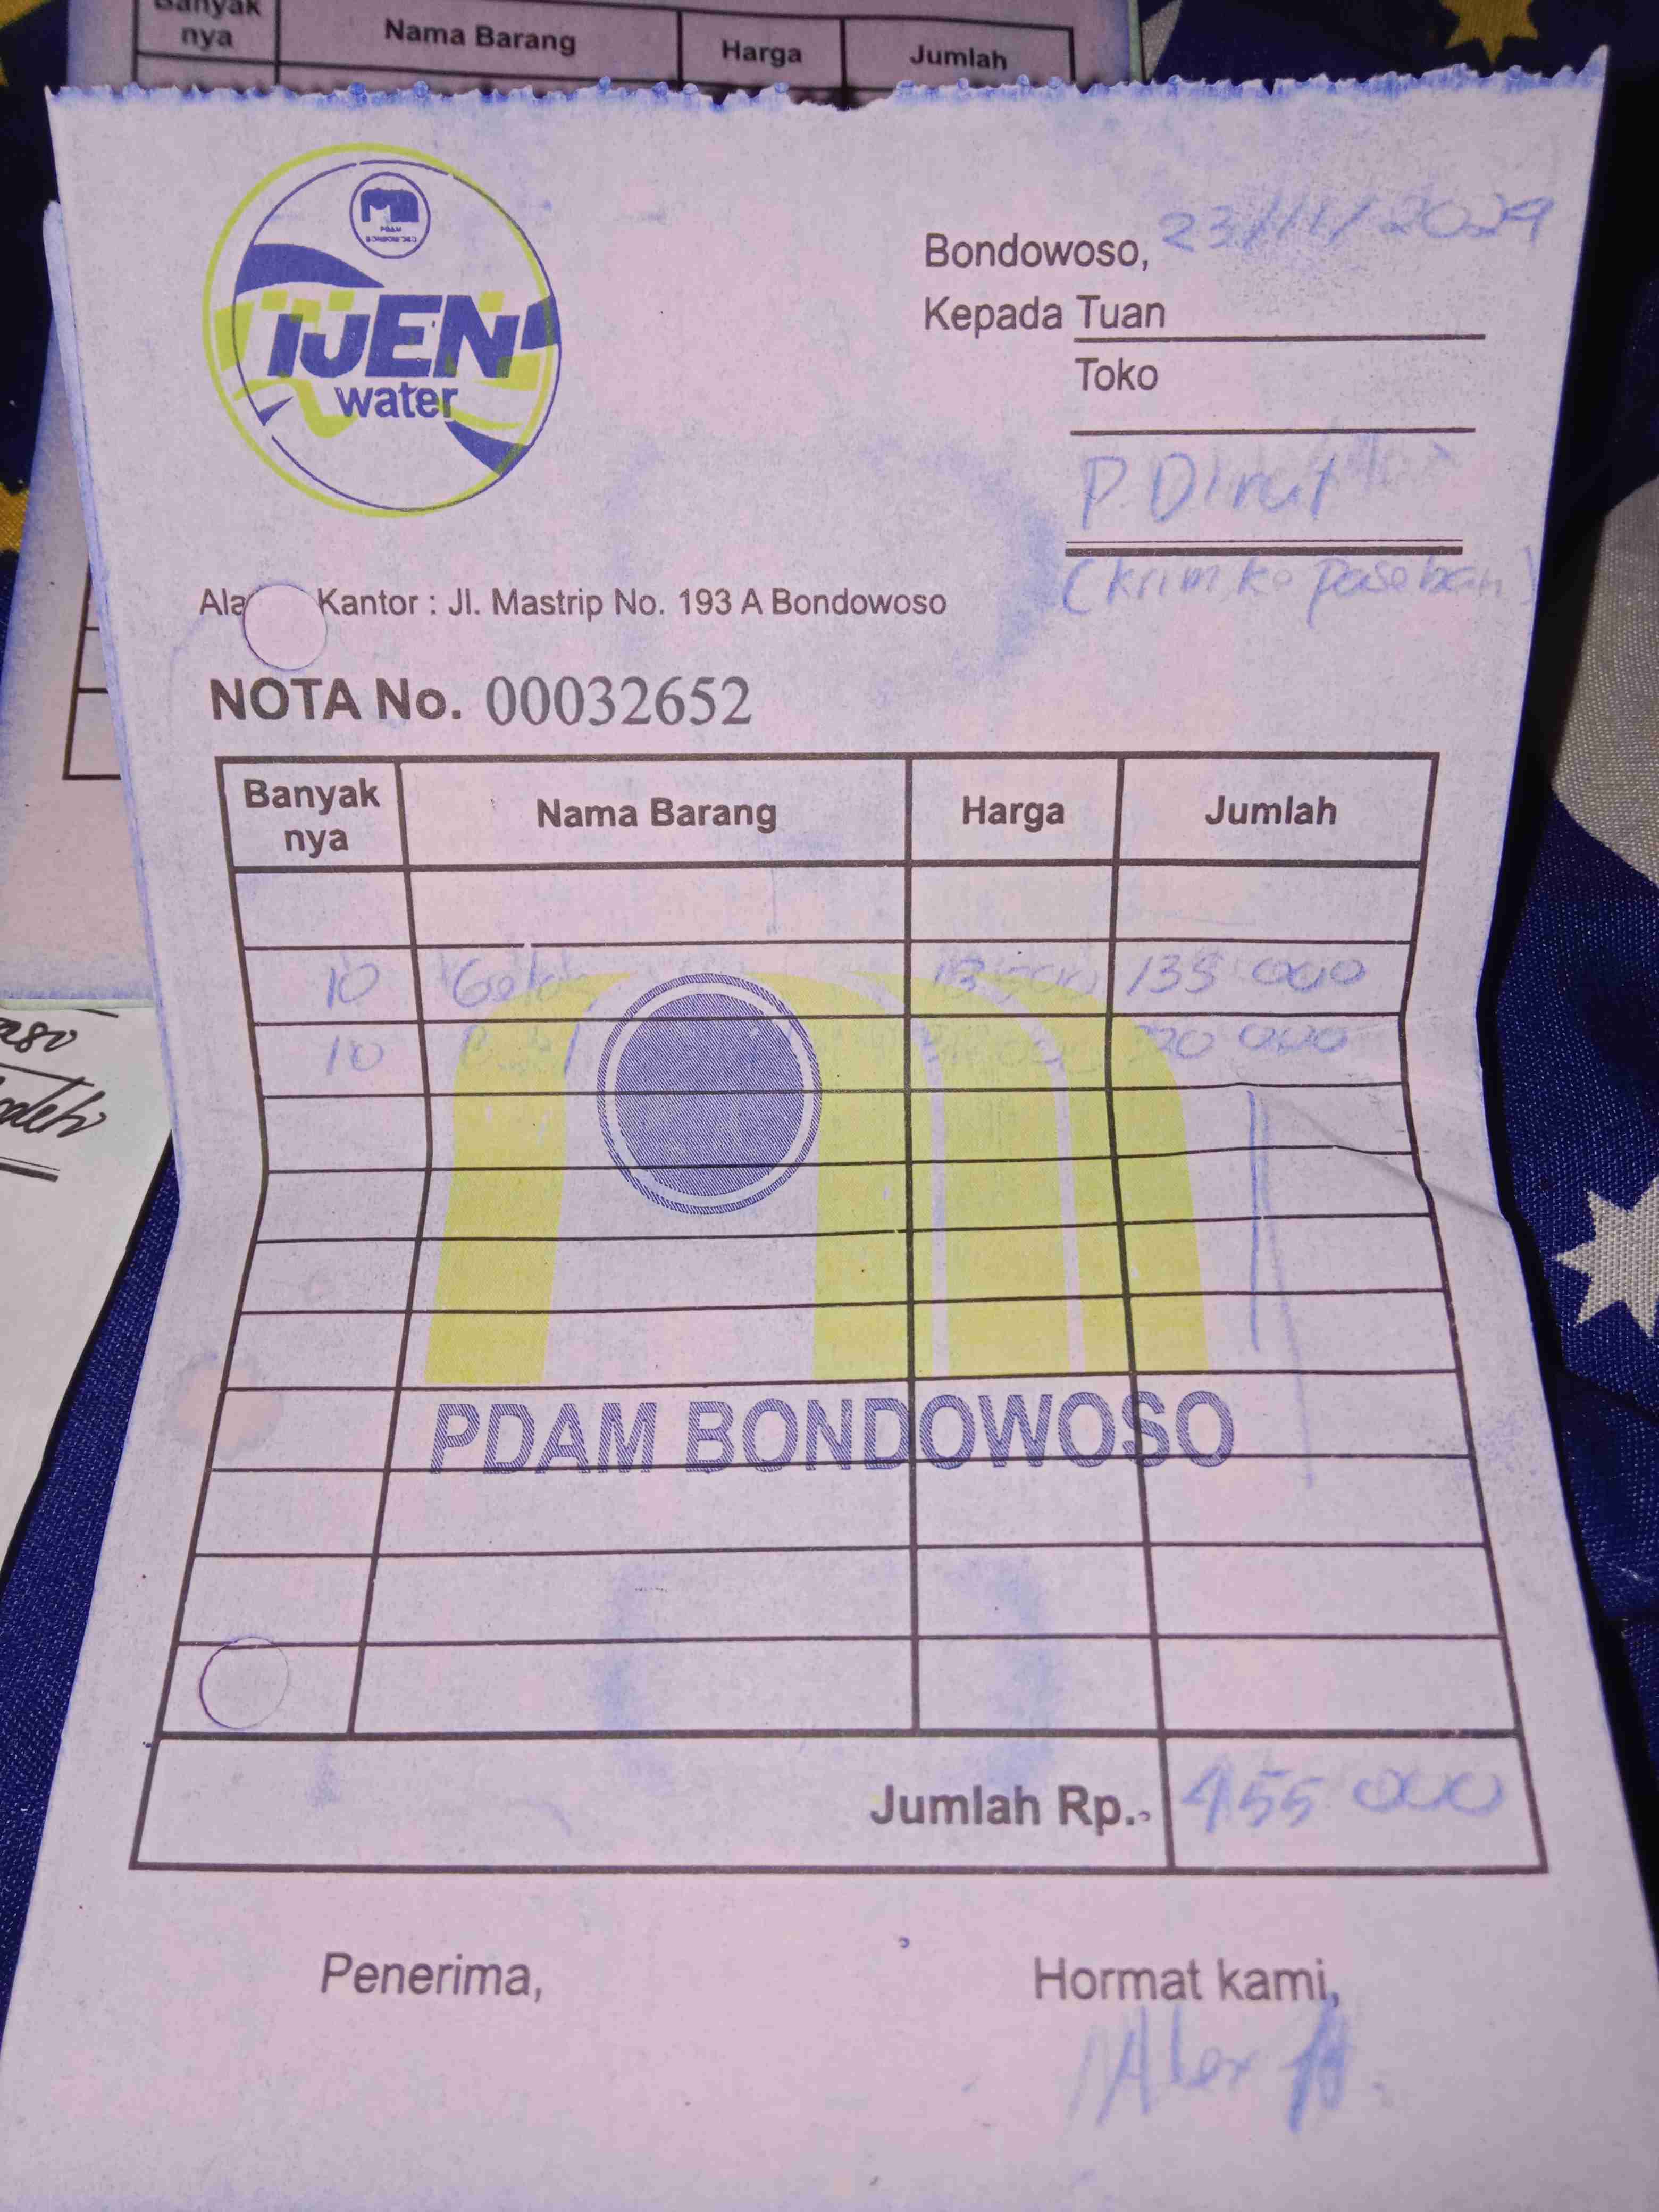 Banyak nya Nama Barang Harga Jumlah
PDAM
IJEN
water
Bondowoso, 23/11/2029
Kepada Tuan
Toko
P. Dirut
(kirim ke paseban)
Kantor : Jl. Mastrip No. 193 A Bondowoso
NOTA No. 00032652
Banyak nya Nama Barang Harga Jumlah
10 Gelas 13 500 135 000
10 000
PDAM BONDOWOSO
Jumlah Rp. 455 000
Penerima, Hormat kami,
Alex